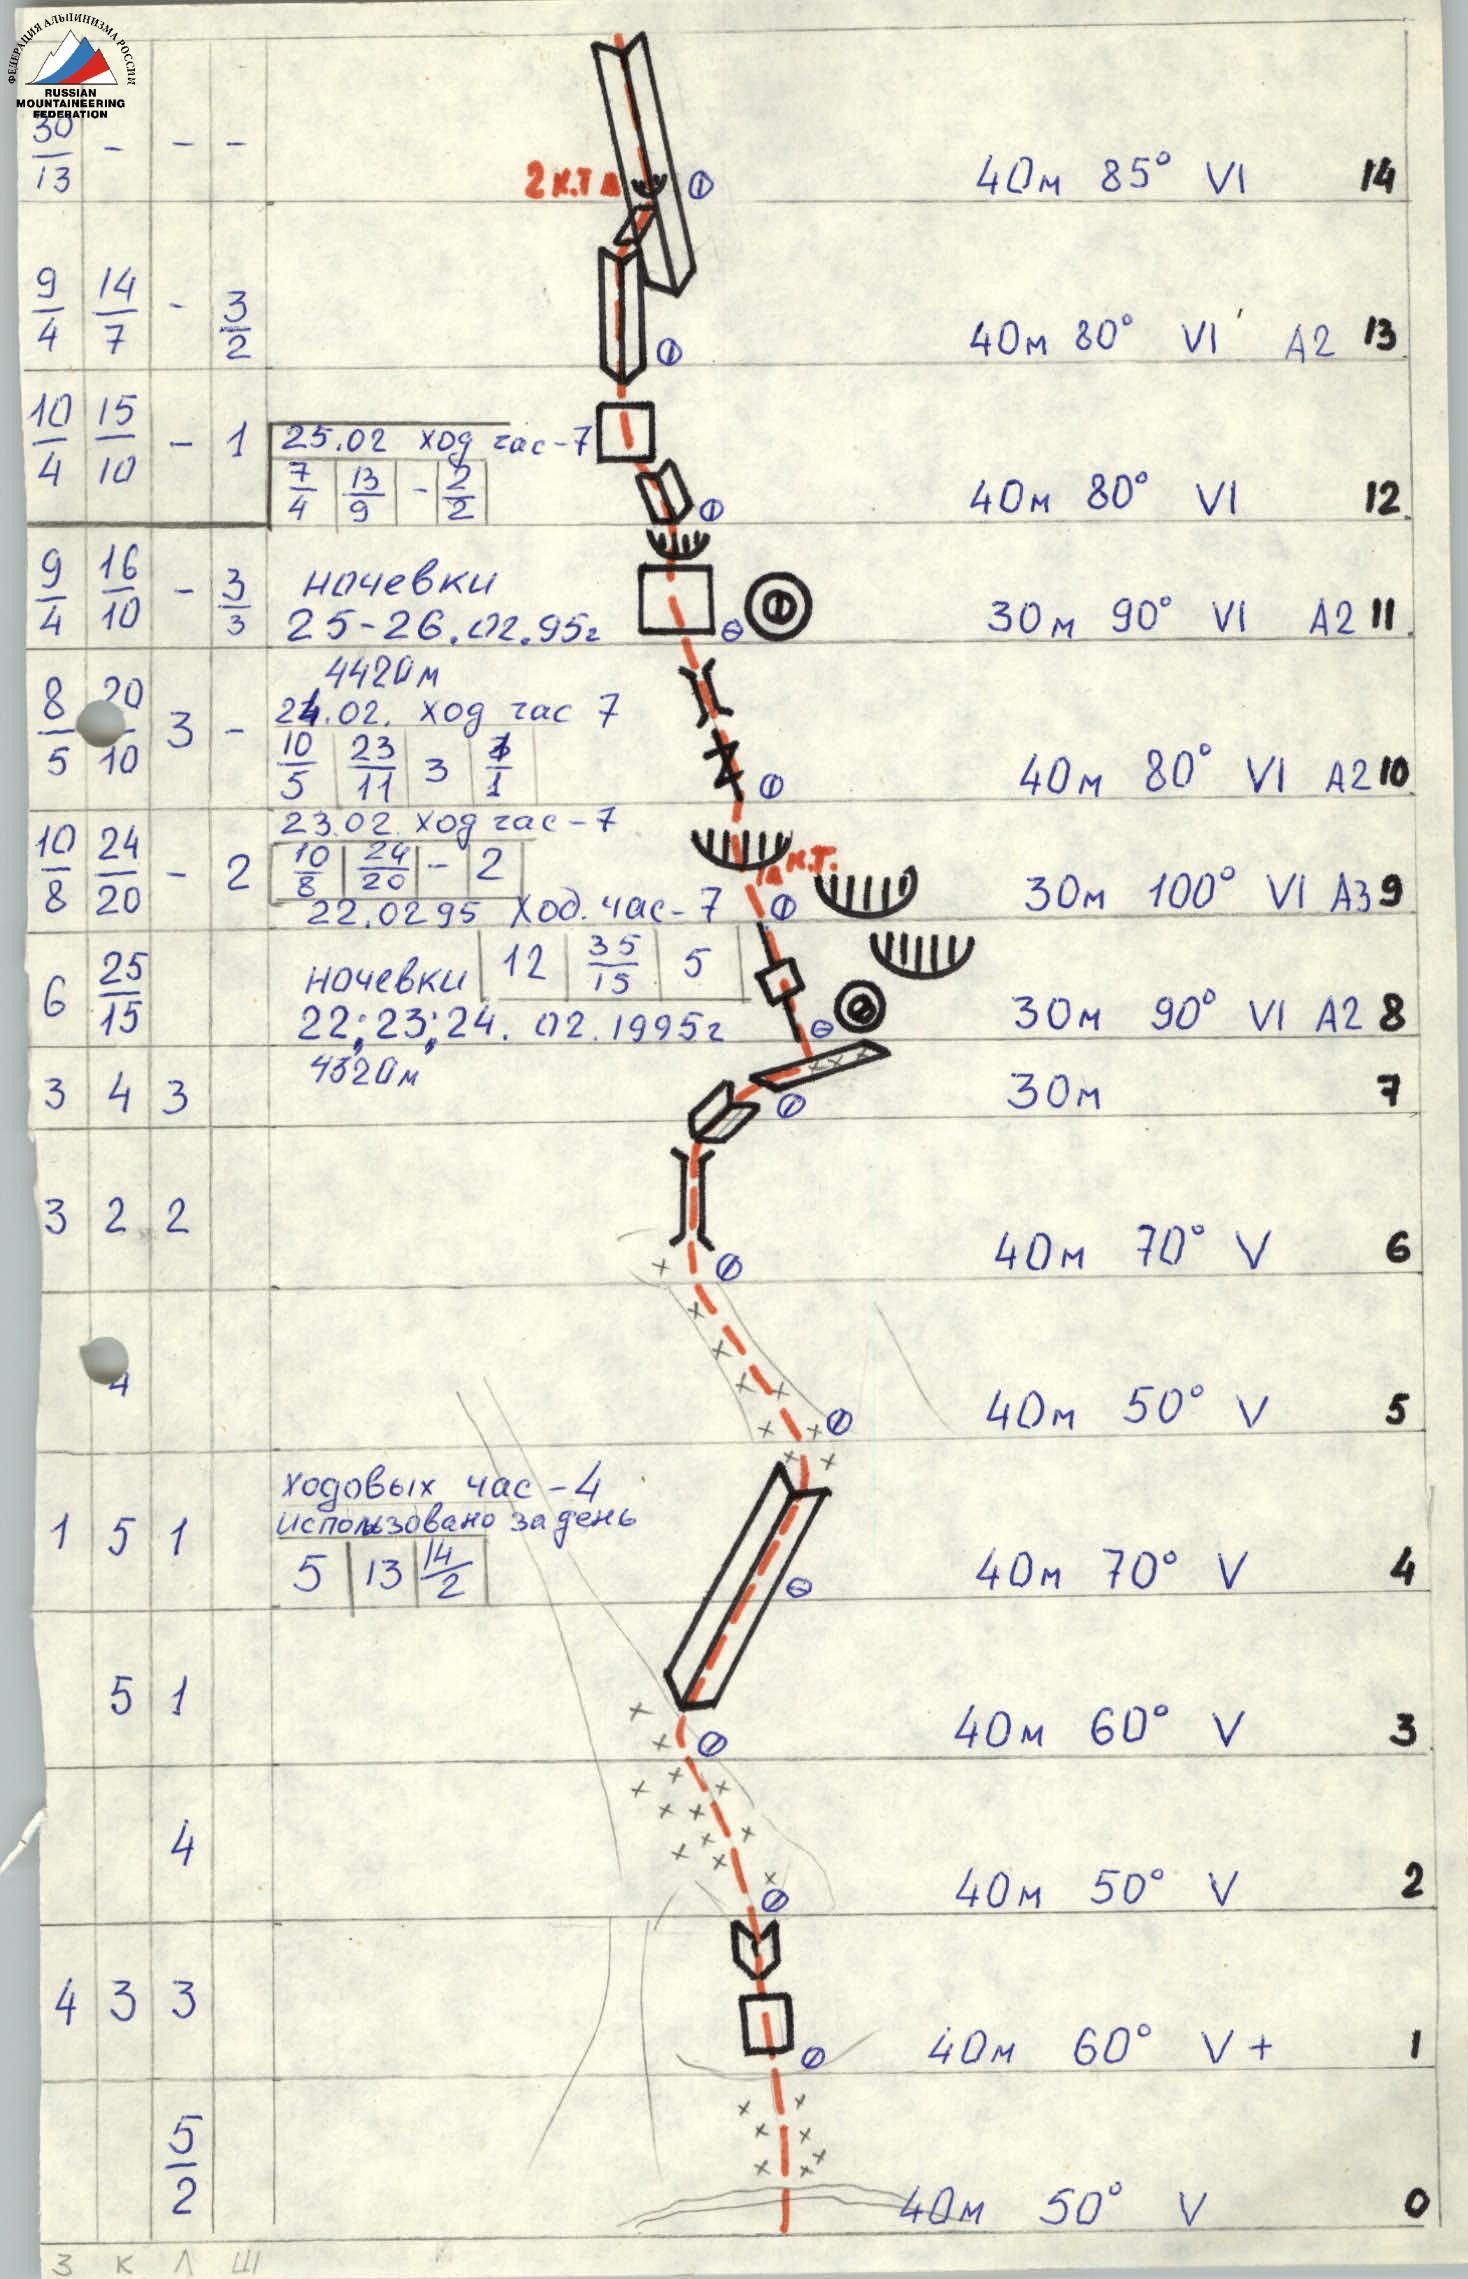 ФЕДЕРАЦИЯ АЛЬПИНИЗМА РОССИИ
RUSSIAN
MOUNTAINEERING
FEDERATION
30/13 - - -
2 к.т.
40м 85° VI 14
9/4 14/7 - 3/2
40м 80° VI A2 13
10/4 15/10 - 1
25.02 ход час-7
7/4 13/9 - 2/2
40м 80° VI 12
9/4 16/10 - 3/3
ночевки
25-26.02.95г
30м 90° VI A2 11
4420м
8/5 20/10 3 -
24.02. ход час 7
10/5 23/11 3 1
40м 80° VI A2 10
23.02. ход час-7
10/8 24/20 - 2
10/8 24/20 - 2
к.т.
30м 100° VI A3 9
22.0295 ход. час-7
12 35/15 5
6 25/15
ночевки
22;23;24.02.1995г
30м 90° VI A2 8
4320м
3 4 3
30м 7
3 2 2
40м 70° V 6
4
40м 50° V 5
ходовых час-4
использовано за день
1 5 1
5 13 14/2
40м 70° V 4
5 1
40м 60° V 3
4
40м 50° V 2
4 3 3
40м 60° V+ 1
5/2
40м 50° V 0
З К Л Ш